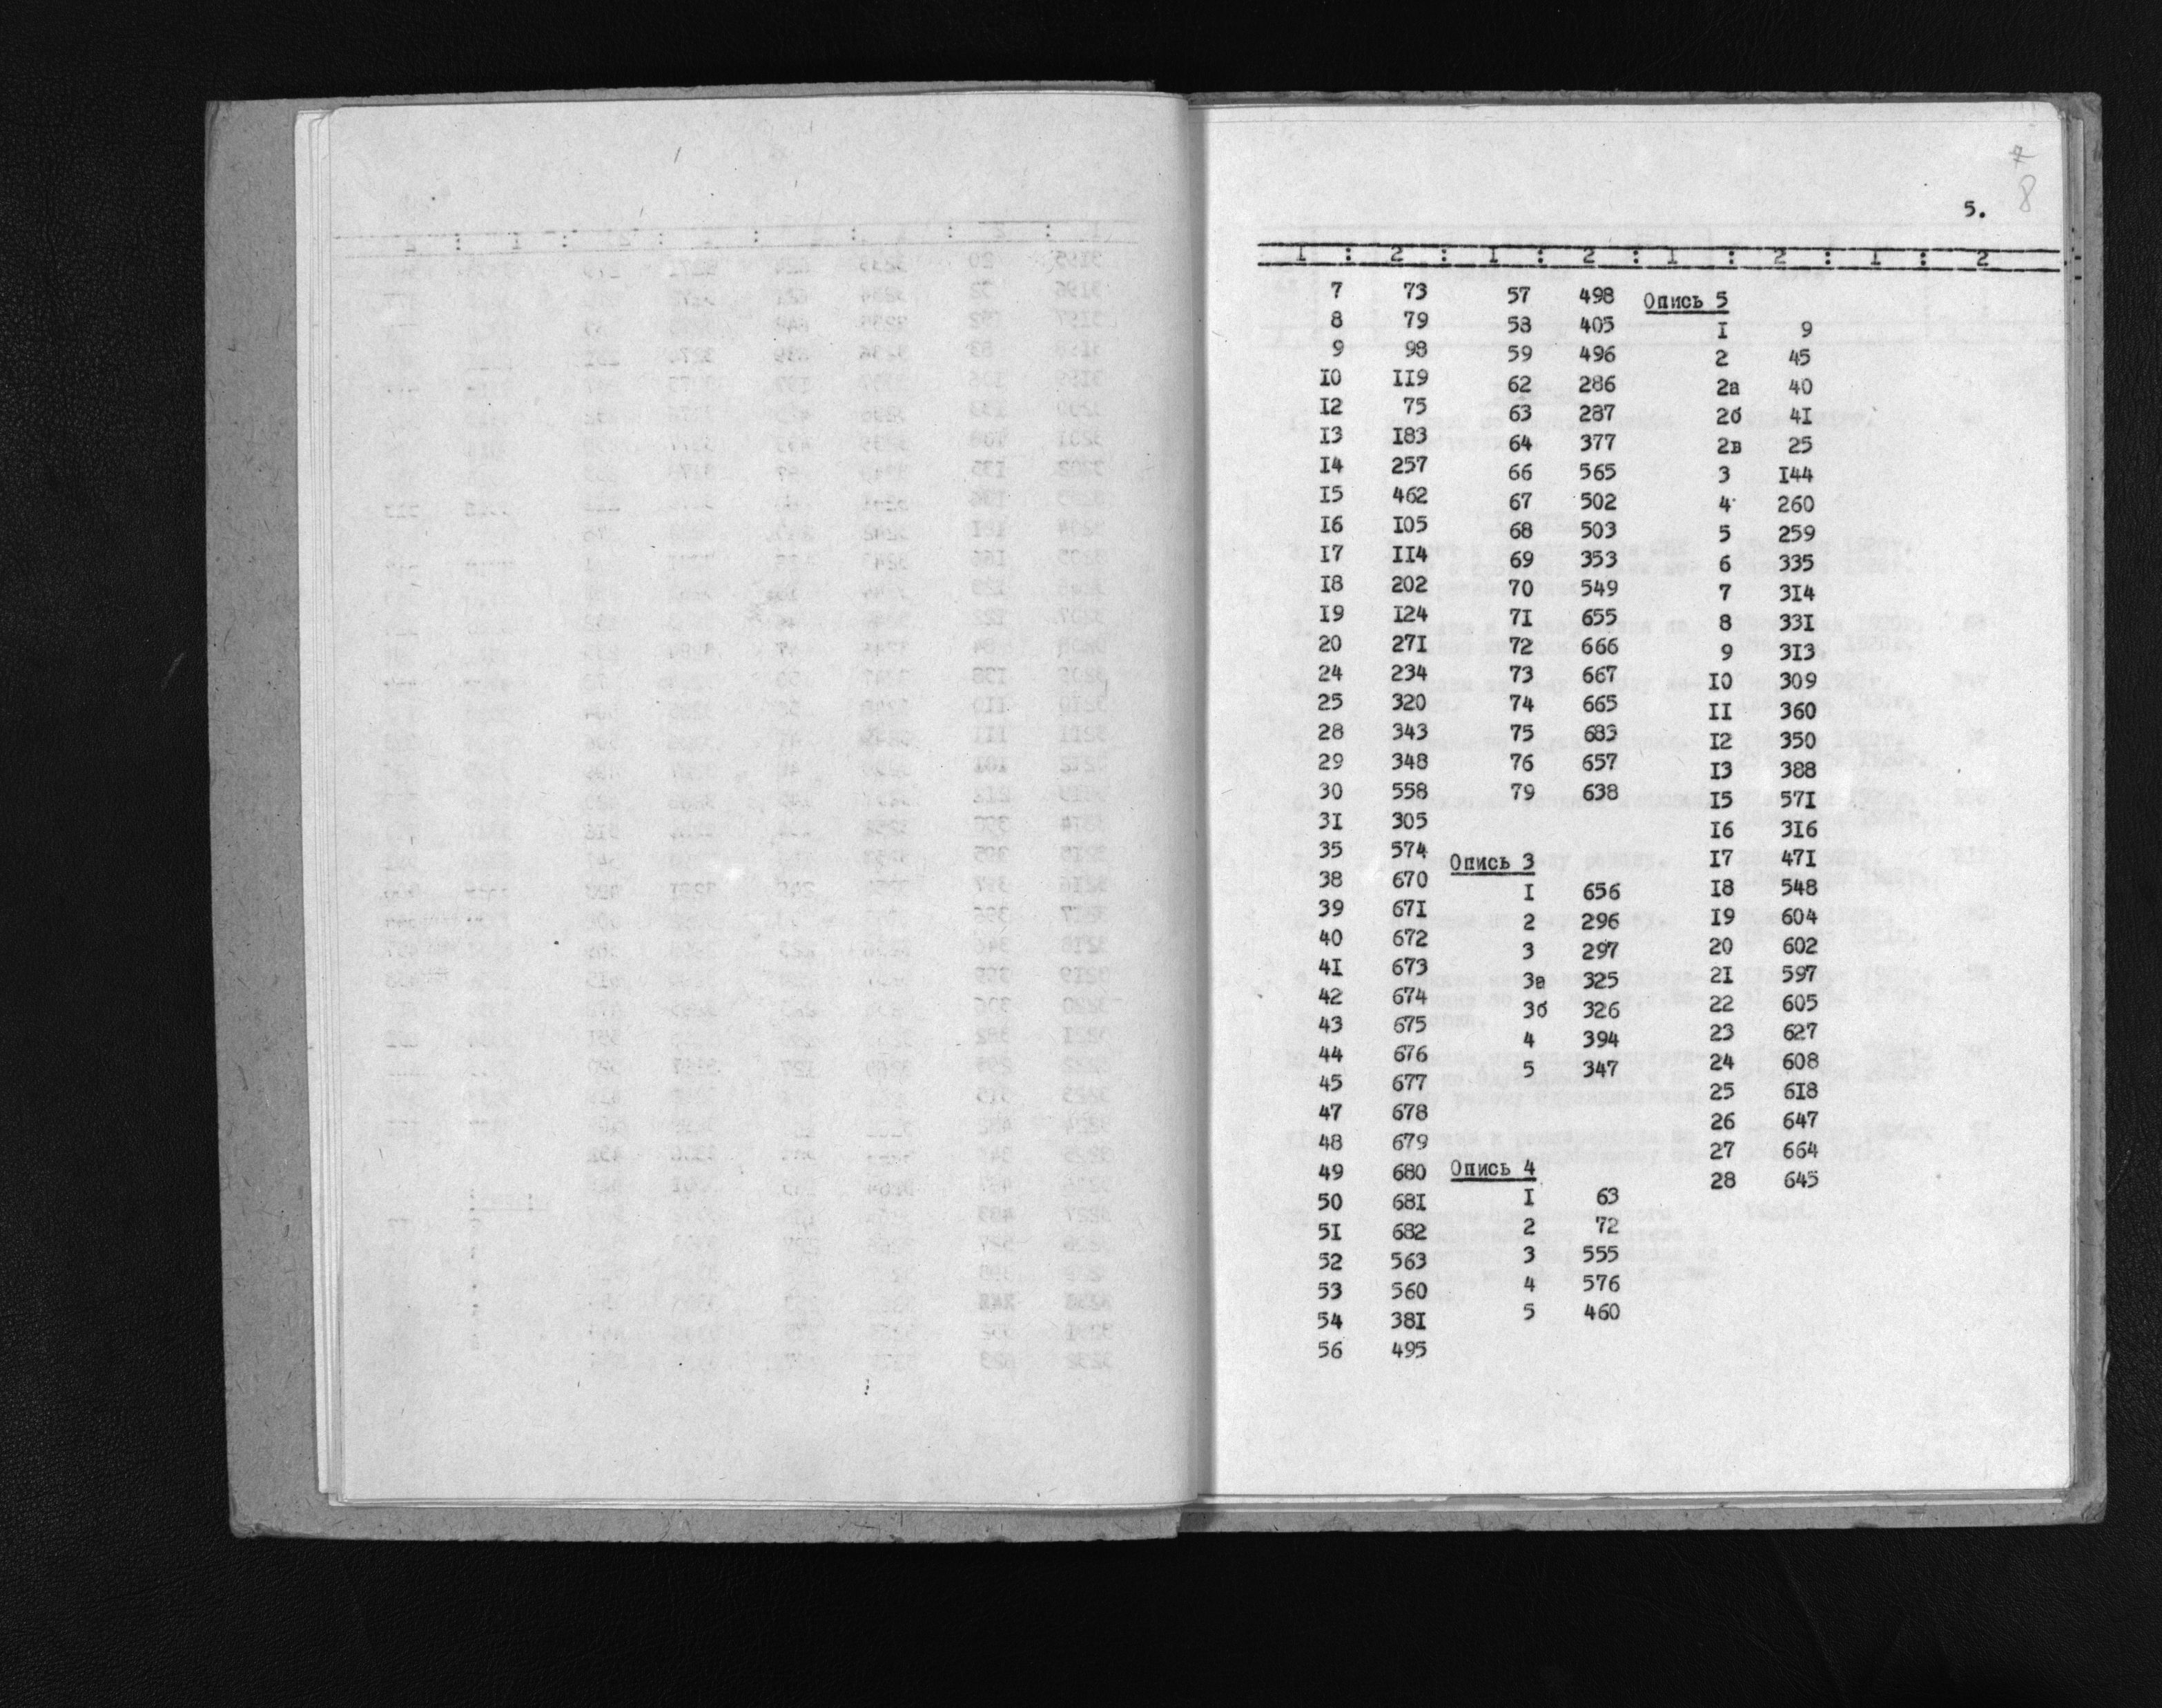 7
8
5.
I : 2 : I : 2 : I : 2 : I : 2
7 73
8 79
9 98
I0 II9
I2 75
I3 I83
I4 257
I5 462
I6 I05
I7 II4
I8 202
I9 I24
20 27I
24 234
25 320
28 343
29 348
30 558
3I 305
35 574
38 670
39 67I
40 672
4I 673
42 674
43 675
44 676
45 677
47 678
48 679
49 680
50 68I
5I 682
52 563
53 560
54 38I
56 495
57 498
58 405
59 496
62 286
63 287
64 377
66 565
67 502
68 503
69 353
70 549
7I 655
72 666
73 667
74 665
75 683
76 657
79 638
Опись 3
I 656
2 296
3 297
3а 325
3б 326
4 394
5 347
Опись 4
I 63
2 72
3 555
4 576
5 460
Опись 5
I 9
2 45
2а 40
2б 4I
2в 25
3 I44
4 260
5 259
6 335
7 3I4
8 33I
9 3I3
I0 309
II 360
I2 350
I3 388
I5 57I
I6 3I6
I7 47I
I8 548
I9 604
20 602
2I 597
22 605
23 627
24 608
25 6I8
26 647
27 664
28 645